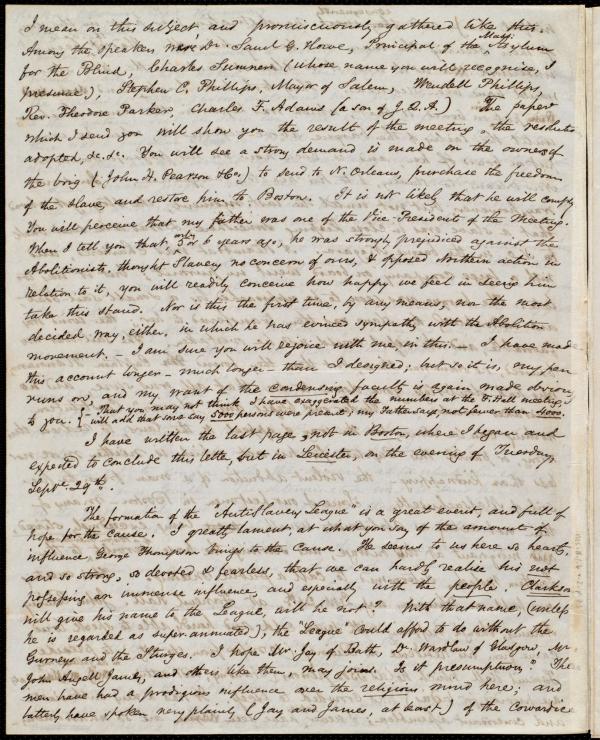 I mean on this subject and promiscuously gathered like this.
Among the speakers were Dr. Saml G. Howe, Principal of the Mass: Asylum
for the Blind, Charles Sumner (whose name you will recognise, I
presume), Stephen C. Phillips, Mayor of Salem, Wendell Phillips,
Rev. Theodore Parker, Charles F. Adams (a son of J. Q. A.) The paper
which I send you will show you the result of the meeting, the resolutions
adopted, &c. &c. You will see a strong demand is made on the owners of
the brig (John H. Pearson & Co.) to send to N. Orleans, purchase the freedom
of the slave, and restore him to Boston. It is not likely that he will comply.
You will perceive that my father was one of the Vice-Presidents of the Meeting.
When I tell you that, only 5 or 6 years ago, he was strongly prejudiced against the
Abolitionists, thought Slavery no concern of ours, & opposed Northern action in
relation to it, you will readily conceive how happy we feel in seeing him
take this stand. Nor is this the first time, by any means, nor the most
decided way, either, in which he has evinced sympathy with the Abolition
movement. – I am sure you will rejoice with me, in this. – I have made
this account longer – much longer – than I designed; but so it is, my pen
runs on, and my want of the condensing faculty is again made obvious
to you. {– That you may not think I have exaggerated the numbers at the F. Hall meeting, I
will add that some say 5000 persons were present; my Father says not fewer than 4000.
I have written the last page, not in Boston, where I began and
expected to conclude this letter, but in Leicester, on the evening of Tuesday,
Septr. 29th.
The formation of the "AntiSlavery League" is a great event, and full of
hope for the cause. I greatly lament, at what you say of the amount of
influence George Thompson brings to the Cause. He seems to us here so hearty,
and so strong, so devoted & fearless, that we can hardly realise his not
possessing an immense influence, and especially with the people. Clarkson
will give his name to the League, will he not? With that name (unless
he is regarded as superannuated), the "League" could afford to do without the
Gurneys and the Sturges. I hope Mr. Jay of Bath, Dr. Wardlaw of Glasgow, Mr.
John Angell James, and others like them, may join. Is it presumptuous? The
men have had a prodigious influence over the religious mind here; and
latterly have spoken very plainly (Jay and James, at least) of the cowardice